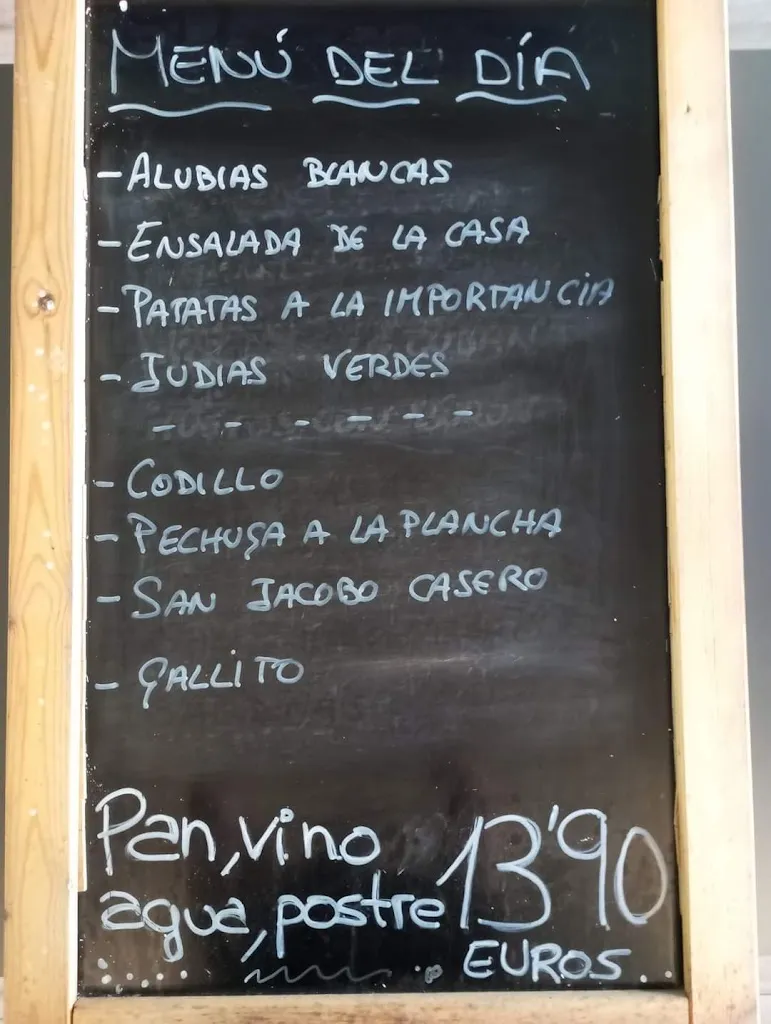 MENÚ DEL DÍA
- ALUBIAS BLANCAS
- ENSALADA DE LA CASA
- PATATAS A LA IMPORTANCIA
- JUDIAS VERDES
- - - - - -
- CODILLO
- PECHUGA A LA PLANCHA
- SAN JACOBO CASERO
- GALLITO
Pan, vino
agua, postre 13'90
EUROS